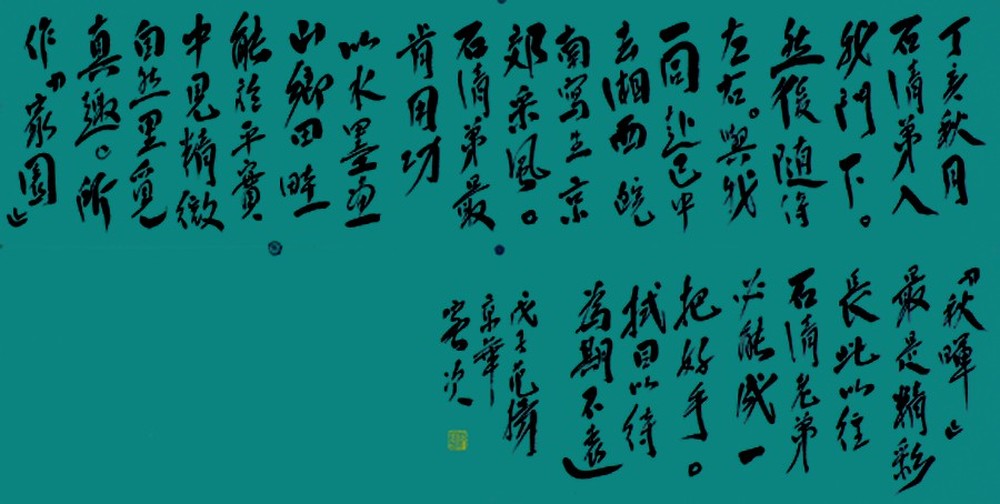 丁亥秋月
石清弟入
我門下。
然後随侍
左右。與我
一同赴巴中
去湘西皖
南寫生京
郊采風。
石清弟最
肯用功
以水墨畫
山鄉田畦
能於平實
中見精微
自然里覓
真趣。所
作「家園」
「秋暉」
最是精彩
長此以往
石清老弟
必能成一
把好手。
拭目以待
為期不遠
戊子范揚
京華
客次